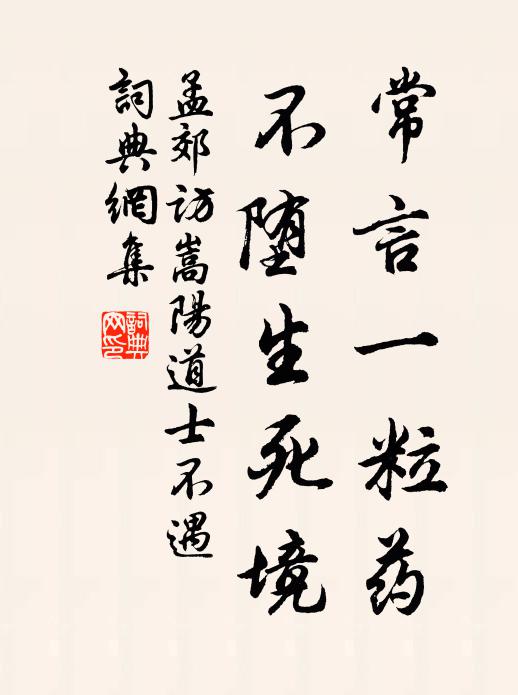 常言一粒药
不堕生死境
孟郊访嵩陽道士不遇
詞典網集
詞典网印